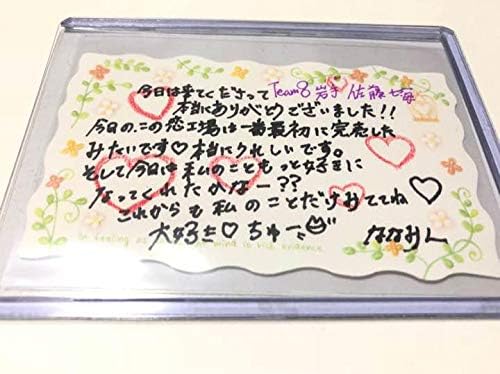 今日は来てくださって Team8 岩手 佐藤七海
本当にありがとうございました!!
今日の、この恋工場は一番最初に完売した
みたいです♡本当にうれしいです。
そして今日は私のこともっと好きに
なってくれたかなー??
これからも私のことだけみててね
大好き♡ちゅーっ ななみん
feeling mind is rich evidence